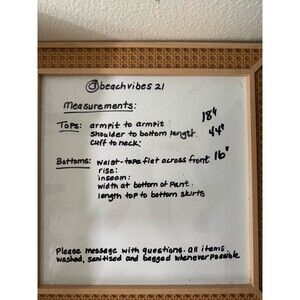 @beachvibes21
Measurements:
Tops: armpit to armpit: 18"
shoulder to bottom length 44"
cuff to neck:
Bottoms: waist-tape flat across front 16"
rise:
inseam:
width at bottom of pant.
length top to bottom skirts
Please message with questions. all items
washed, sanitized and bagged whenever possible